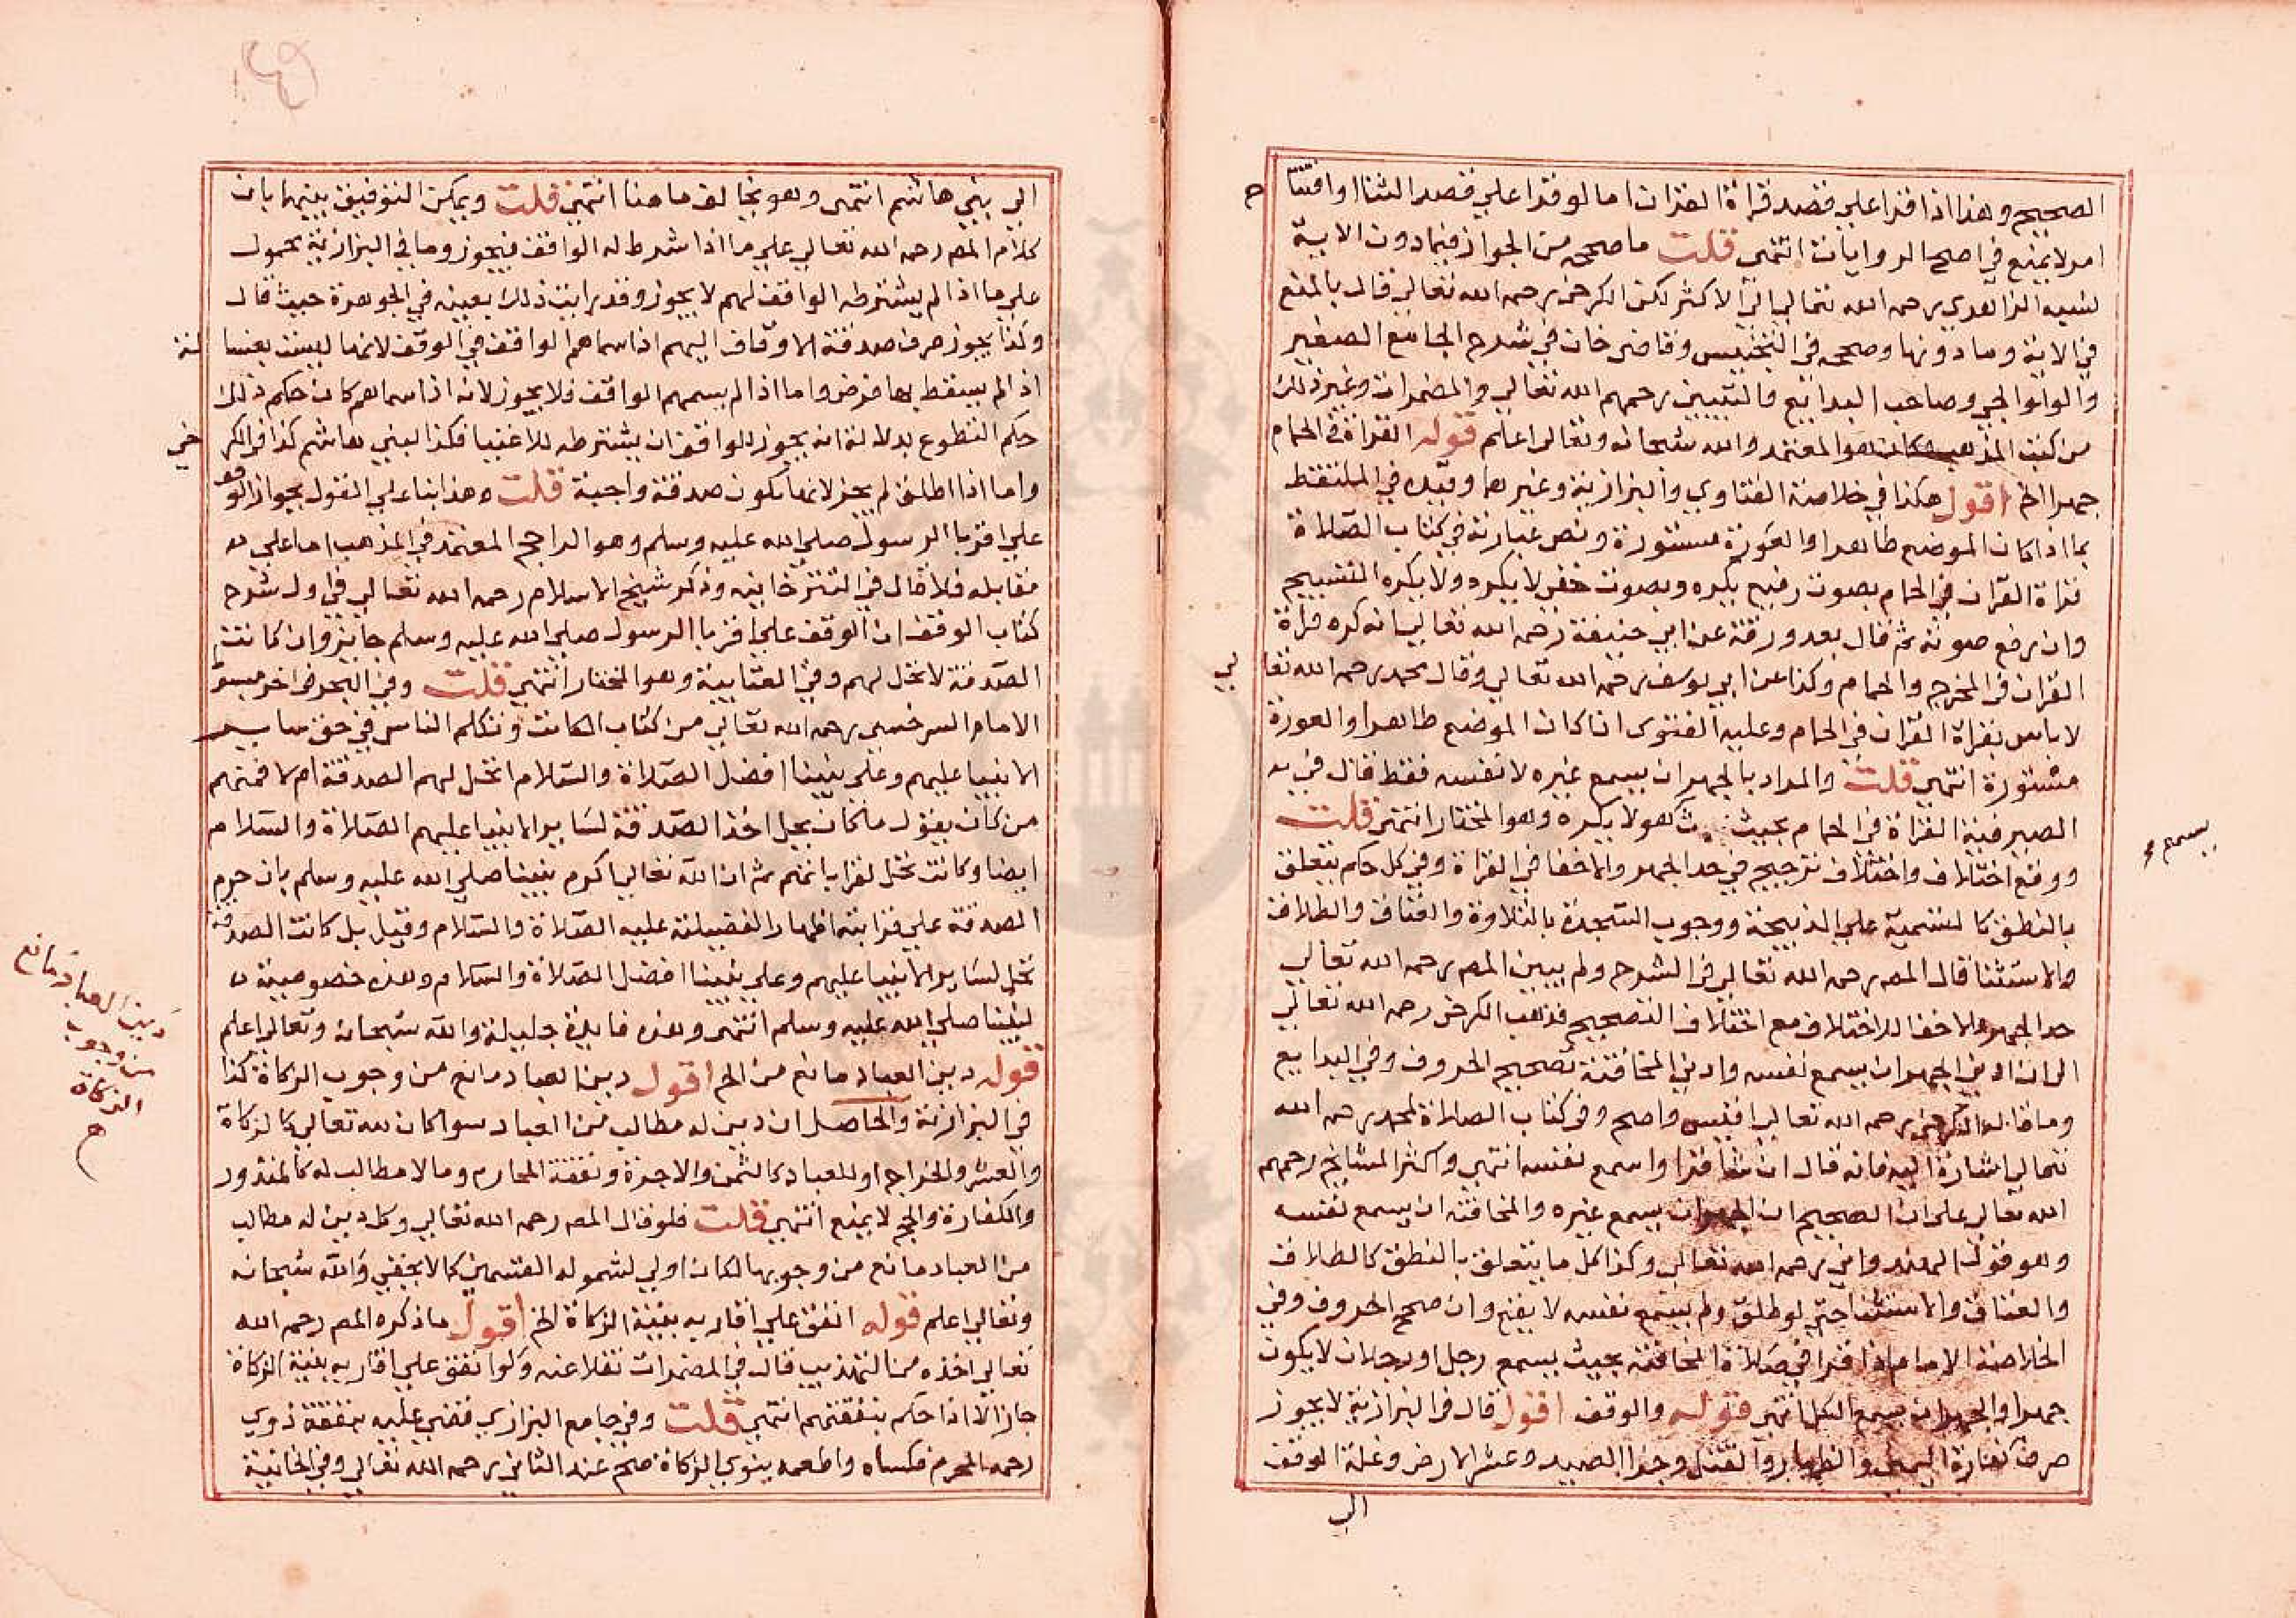 الصحيح وهذا اذا قرا علي قصد قراة القران اما لو قرا علي قصد الثنا او افتتا
ح
امر لا يمنع في اصح الروايات انتهي قلت ما صححه من الجواز فيما دون الاية
نسبه الزاهدي رحمه الله تعالي الي الاكثر لكن الكرخي رحمه الله تعالي قال بالمنع
في الاية وما دونها وصححه في التجنيس وقاضي خان في شرح الجامع الصغير
والولوالجي وصاحب البدائع والتبيين رحمهم الله تعالي والمضمرات وغير ذلك
من كتب المذهب هو المعتمد والله سبحانه وتعالي اعلم قوله القراة في الحمام
جهرا الخ اقول هكذا في خلاصة الفتاوي والبزازية وغيرهما وقيده في الملتقط
بما اذا كان الموضع طاهرا والعورة مستورة ونص عبارته في كتاب الصلاة
قراة القران في الحمام بصوت رفيع يكره وبصوت خفي لا يكره ولا يكره التسبيح
وان رفع صوته ثم قال بعد ورقة عن ابي حنيفة رحمه الله تعالي انه كره قراة
القران في المخرج والحمام وكذا عن ابي يوسف رحمه الله تعالي وقال محمد رحمه الله تعا
لي
لا باس بقراة القران في الحمام وعليه الفتوي ان كان الموضع طاهرا والعورة
مستورة انتهي قلت والمراد بالجهر ان يسمع غيره لا نفسه فقط قال في
الصيرفية القراة في الحمام بحيث هو لا يكره وهو المختار انتهي قلت
يسمع
ووقع اختلاف واختلاف ترجيح في حد الجهر والاخفا في القراة وفي كل حكم يتعلق
بالنطق كالتسمية علي الذبيحة ووجوب السجدة بالتلاوة والعتاق والطلاق
والاستثنا قال المصـ رحمه الله تعالي في الشرح ولم يبين المصـ رحمه الله تعالي
حد الجهر والاخفا للاختلاف مع اختلاف التصحيح فذهب الكرخي رحمه الله تعالي
الي ان ادني الجهر ان يسمع نفسه وادني المخافتة تصحيح الحروف وفي البدايع
وما قاله الكرخي رحمه الله تعالي اقيس واصح وفي كتاب الصلاة لمحمد رحمه الله
تعالي اشارة اليه فانه قال ان شا قرا واسمع نفسه انتهي واكثر المشايخ رحمهم
الله تعالي علي ان الصحيح ان الجهر ان يسمع غيره والمخافتة ان يسمع نفسه
وهو قول الهندواني رحمه الله تعالي وكذا كل ما يتعلق بالنطق كالطلاق
والعتاق والاستثنا حتي لو طلق ولم يسمع نفسه لا يقع وان صحح الحروف وفي
الخلاصة الامام اذا قرا في صلاة المخافتة بحيث يسمع رجل او رجلان لا يكون
جهرا والجهر ان يسمع الكل انتهي قوله والوقف اقول قال في البزازية لا يجوز
صرف كفارة اليمين والظهار والقتل وجزا الصيد وعشر الارض وغلة الوقف
الي
الي بني هاشم انتهي وهو يخالف ما هنا انتهي قلت ويمكن التوفيق بينهما بان
كلام المصـ رحمه الله تعالي علي ما اذا شرط له الواقف فيجوز وما في البزازية محمول
علي ما اذا لم يشترطه الواقف لهم لا يجوز وقد رايت ذلك بعينه في الجوهرة حيث قال
وكذا يجوز صرف صدقة الاوقاف اليهم اذا سماهم الواقف في الوقف لانها ليست بعينها
اذ لم يسقط بها فرض واما اذا لم يسمهم الواقف فلا يجوز لانه اذا سماهم كان حكم ذلك
حكم التطوع بدلالة انه يجوز للواقف ان يشترطه للاغنيا فكذا لبني هاشم كذا في الكر
خي
واما اذا اطلق لم يجز لانها تكون صدقة واجبة قلت وهذا بنا علي القول بجواز الوقف
علي اقربا الرسول صلي الله عليه وسلم وهو الراجح المعتمد في المذهب اما علي
مقابله فلا قال في التترخانيه وذكر شيخ الاسلام رحمه الله تعالي في اول شرح
كتاب الوقف ان الوقف علي اقربا الرسول صلي الله عليه وسلم جايز وان كانت
الصدقة لا تحل لهم وفي العتابية وهو المختار انتهي قلت وفي البحر في اخر مبسو
الامام السرخسي رحمه الله تعالي من كتاب الكانت وتكلم الناس في حق ساير
الانبيا عليهم وعلي نبينا افضل الصلاة والسلام اتحل لهم الصدقة ام لا فمنهم
من كان يقول ما كان يحل اخذ الصدقة لساير الانبيا عليهم الصلاة والسلام
ايضا وكانت تحل لقراباتهم ثم ان الله تعالي اكرم نبينا صلي الله عليه وسلم بان حرم
الصدقة علي قرابته اظهارا لفضيلته عليه الصلاة والسلام وقيل بل كانت الصدقة
تحل لساير الانبيا عليهم وعلي نبينا افضل الصلاة والسلام وهذه خصوصية
لنبينا صلي الله عليه وسلم انتهي وهذه فايدة جليلة والله سبحانه وتعالي اعلم
قوله دين العباد مانع من الخ اقول دين العباد مانع من وجوب الزكاة كذا
دين العباد مانع
من وجوب
الزكاة
ح
في البزازية والحاصل ان دين له مطالب من العباد سوا كان لله تعالي كالزكاة
والعشر والخراج او للعباد كالثمن والاجرة ونفقة المحارم وما لا مطالب له كالمنذور
والكفارة والحج لا يمنع انتهي قلت فلو قال المصـ رحمه الله تعالي وكل دين له مطالب
من العباد مانع من وجوبها لكان اولي لشموله القسمين كما لا يخفي والله سبحانه
وتعالي اعلم قوله انفق علي اقاربه بنية الزكاة الخ اقول ما ذكره المصـ رحمه الله
تعالي اخذه من التهذيب قال في المضمرات نقلا عنه ولو انفق علي اقاربه بنية الزكاة
جاز الا اذا حكم بنفقتهم انتهي قلت وفي جامع البزازي قضي عليه بنفقة ذوي
رحمه المحرم فكساه واطعمه ينوي الزكاة صح عند الثاني رحمه الله تعالي وفي الخانية